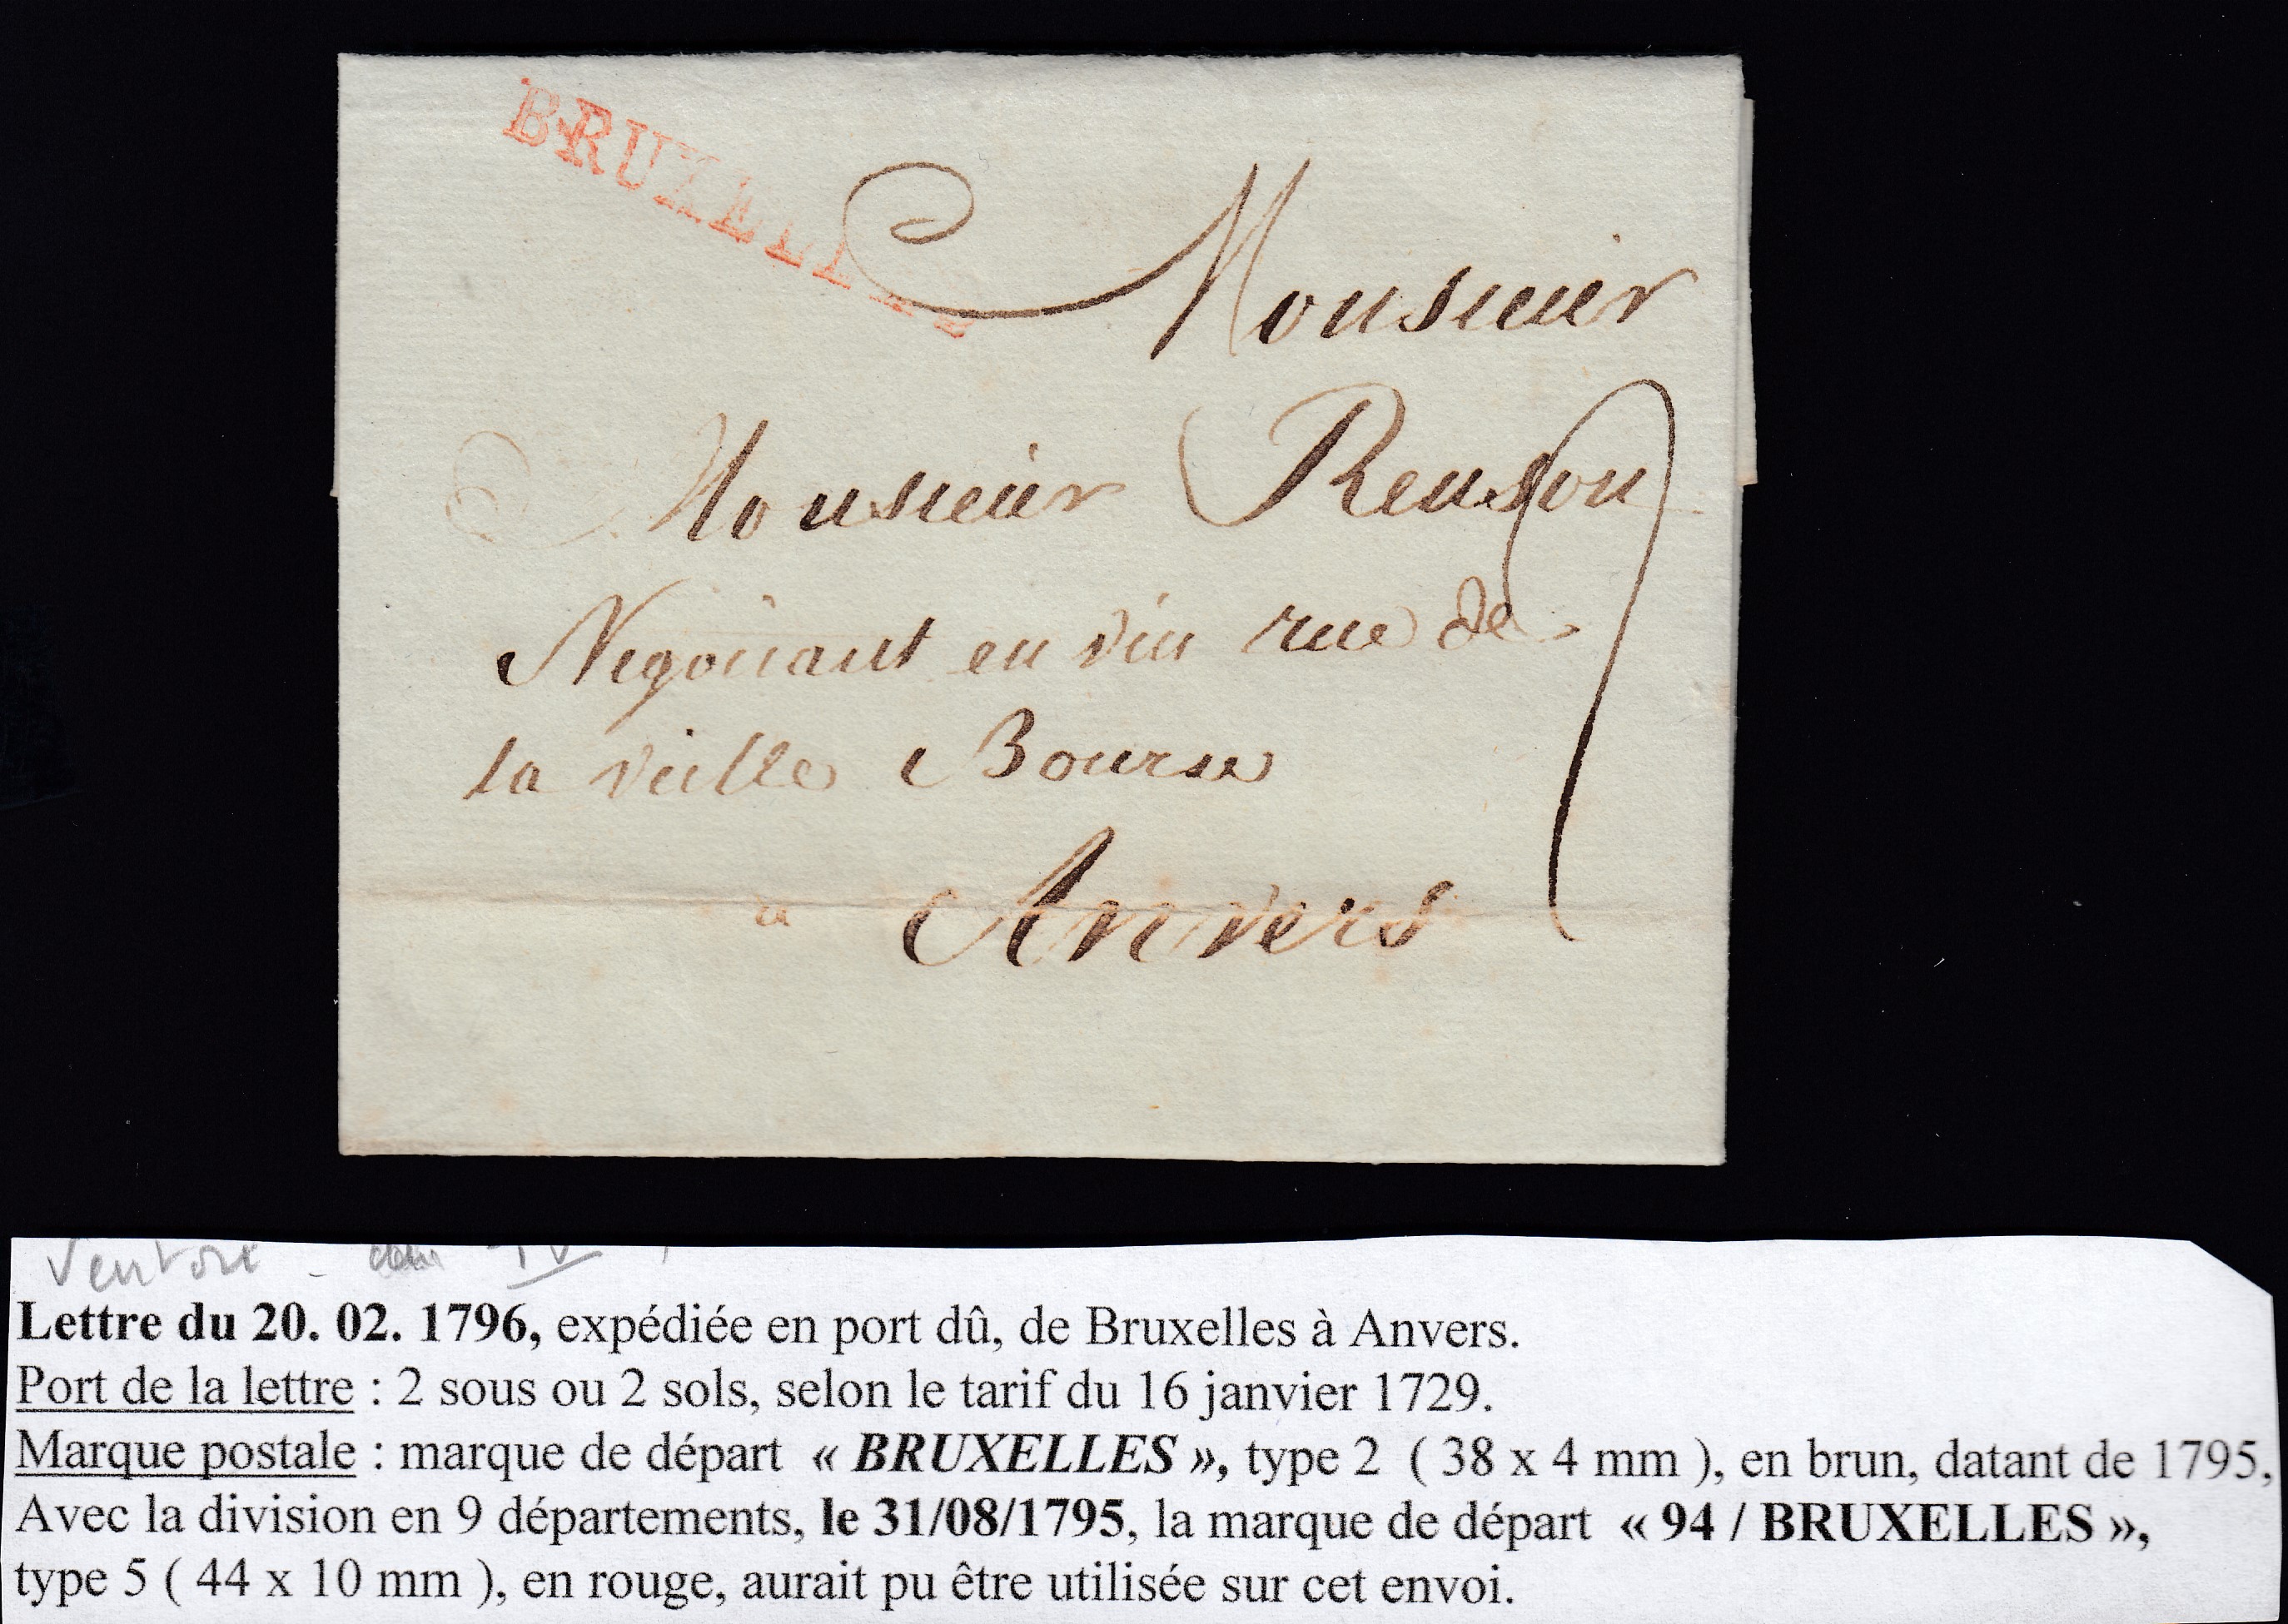 BRUXELLES
Monsieur
Monsieur Renson
Negociant en vin rue de
la vielle Bourse
a Anvers
Ventose - IV
Lettre du 20. 02. 1796, expédiée en port dû, de Bruxelles à Anvers.
Port de la lettre : 2 sous ou 2 sols, selon le tarif du 16 janvier 1729.
Marque postale : marque de départ « BRUXELLES », type 2 ( 38 x 4 mm ), en brun, datant de 1795,
Avec la division en 9 départements, le 31/08/1795, la marque de départ « 94 / BRUXELLES »,
type 5 ( 44 x 10 mm ), en rouge, aurait pu être utilisée sur cet envoi.